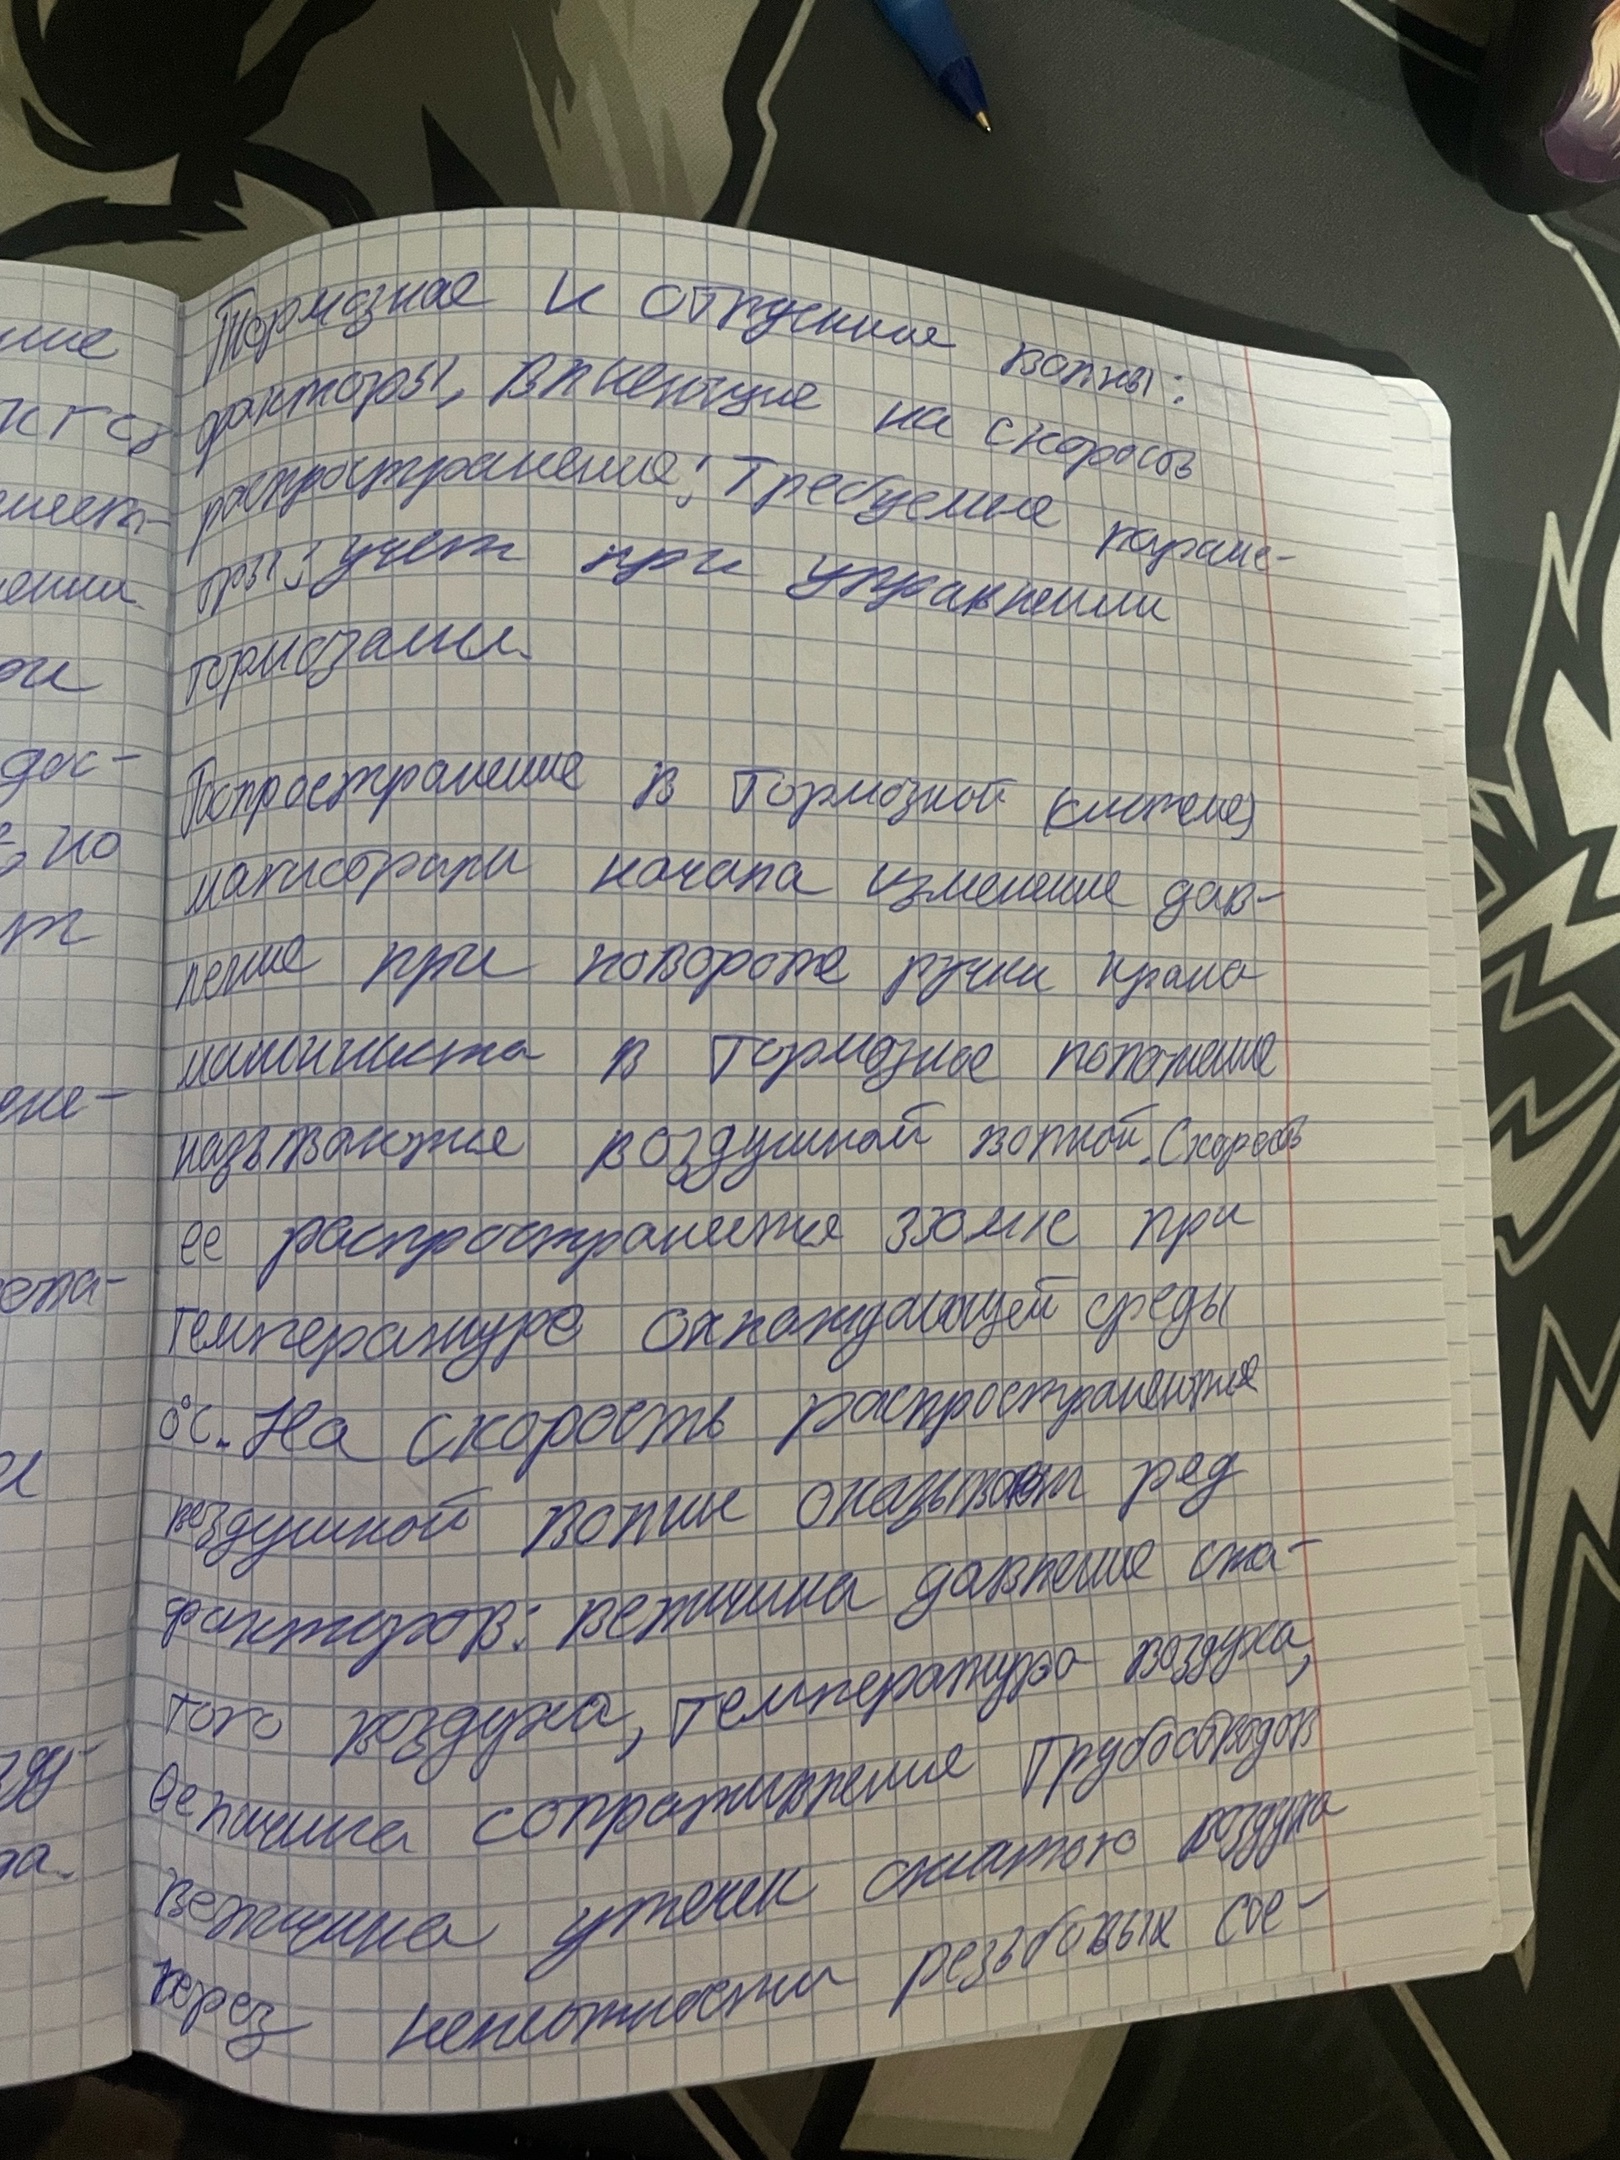 ние
кгс
ении
ои
дос-
, но
т
ене-
да.
Тормозная и отпускная волны:
факторы, влияющие на скорость
распространения; требуемые параме-
тры; учет при управлении
тормозами.
Распространение в тормозной (системе)
магистрали начала изменение дав-
ление при повороте ручки крана
машиниста в тормозное положение
называются воздушной волной. Скорость
ее распространяется 330 м/с при
температуре охлаждающей среды
0°С. На скорость распространяются
воздушной волны оказывают ряд
факторов: величина давление сжа-
того воздуха, температура воздуха,
Величина сопративление трубособводов
величина утечек сжатою воздуха
через неплотности резьбовых сое-